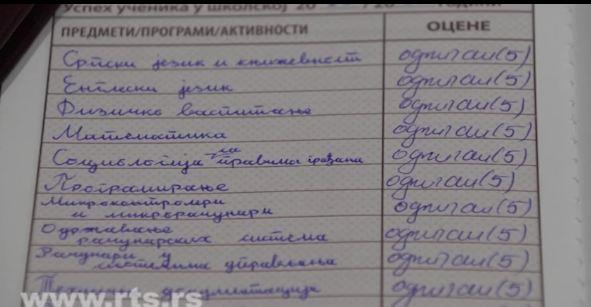 Успех ученика у школској 20 /20 години
ПРЕДМЕТИ/ПРОГРАМИ/АКТИВНОСТИ ОЦЕНЕ
Српски језик и књижевност одличан (5)
Енглески језик одличан (5)
Физичко васпитање одличан (5)
Математика одличан (5)
Социологија са правима грађана одличан (5)
Програмирање одличан (5)
Микроконтролери
и микрорачунари одличан (5)
Одржавање
рачунарских система одличан (5)
Рачунари у
системима управљања одличан (5)
Техничка документација одличан (5)
www.rts.rs